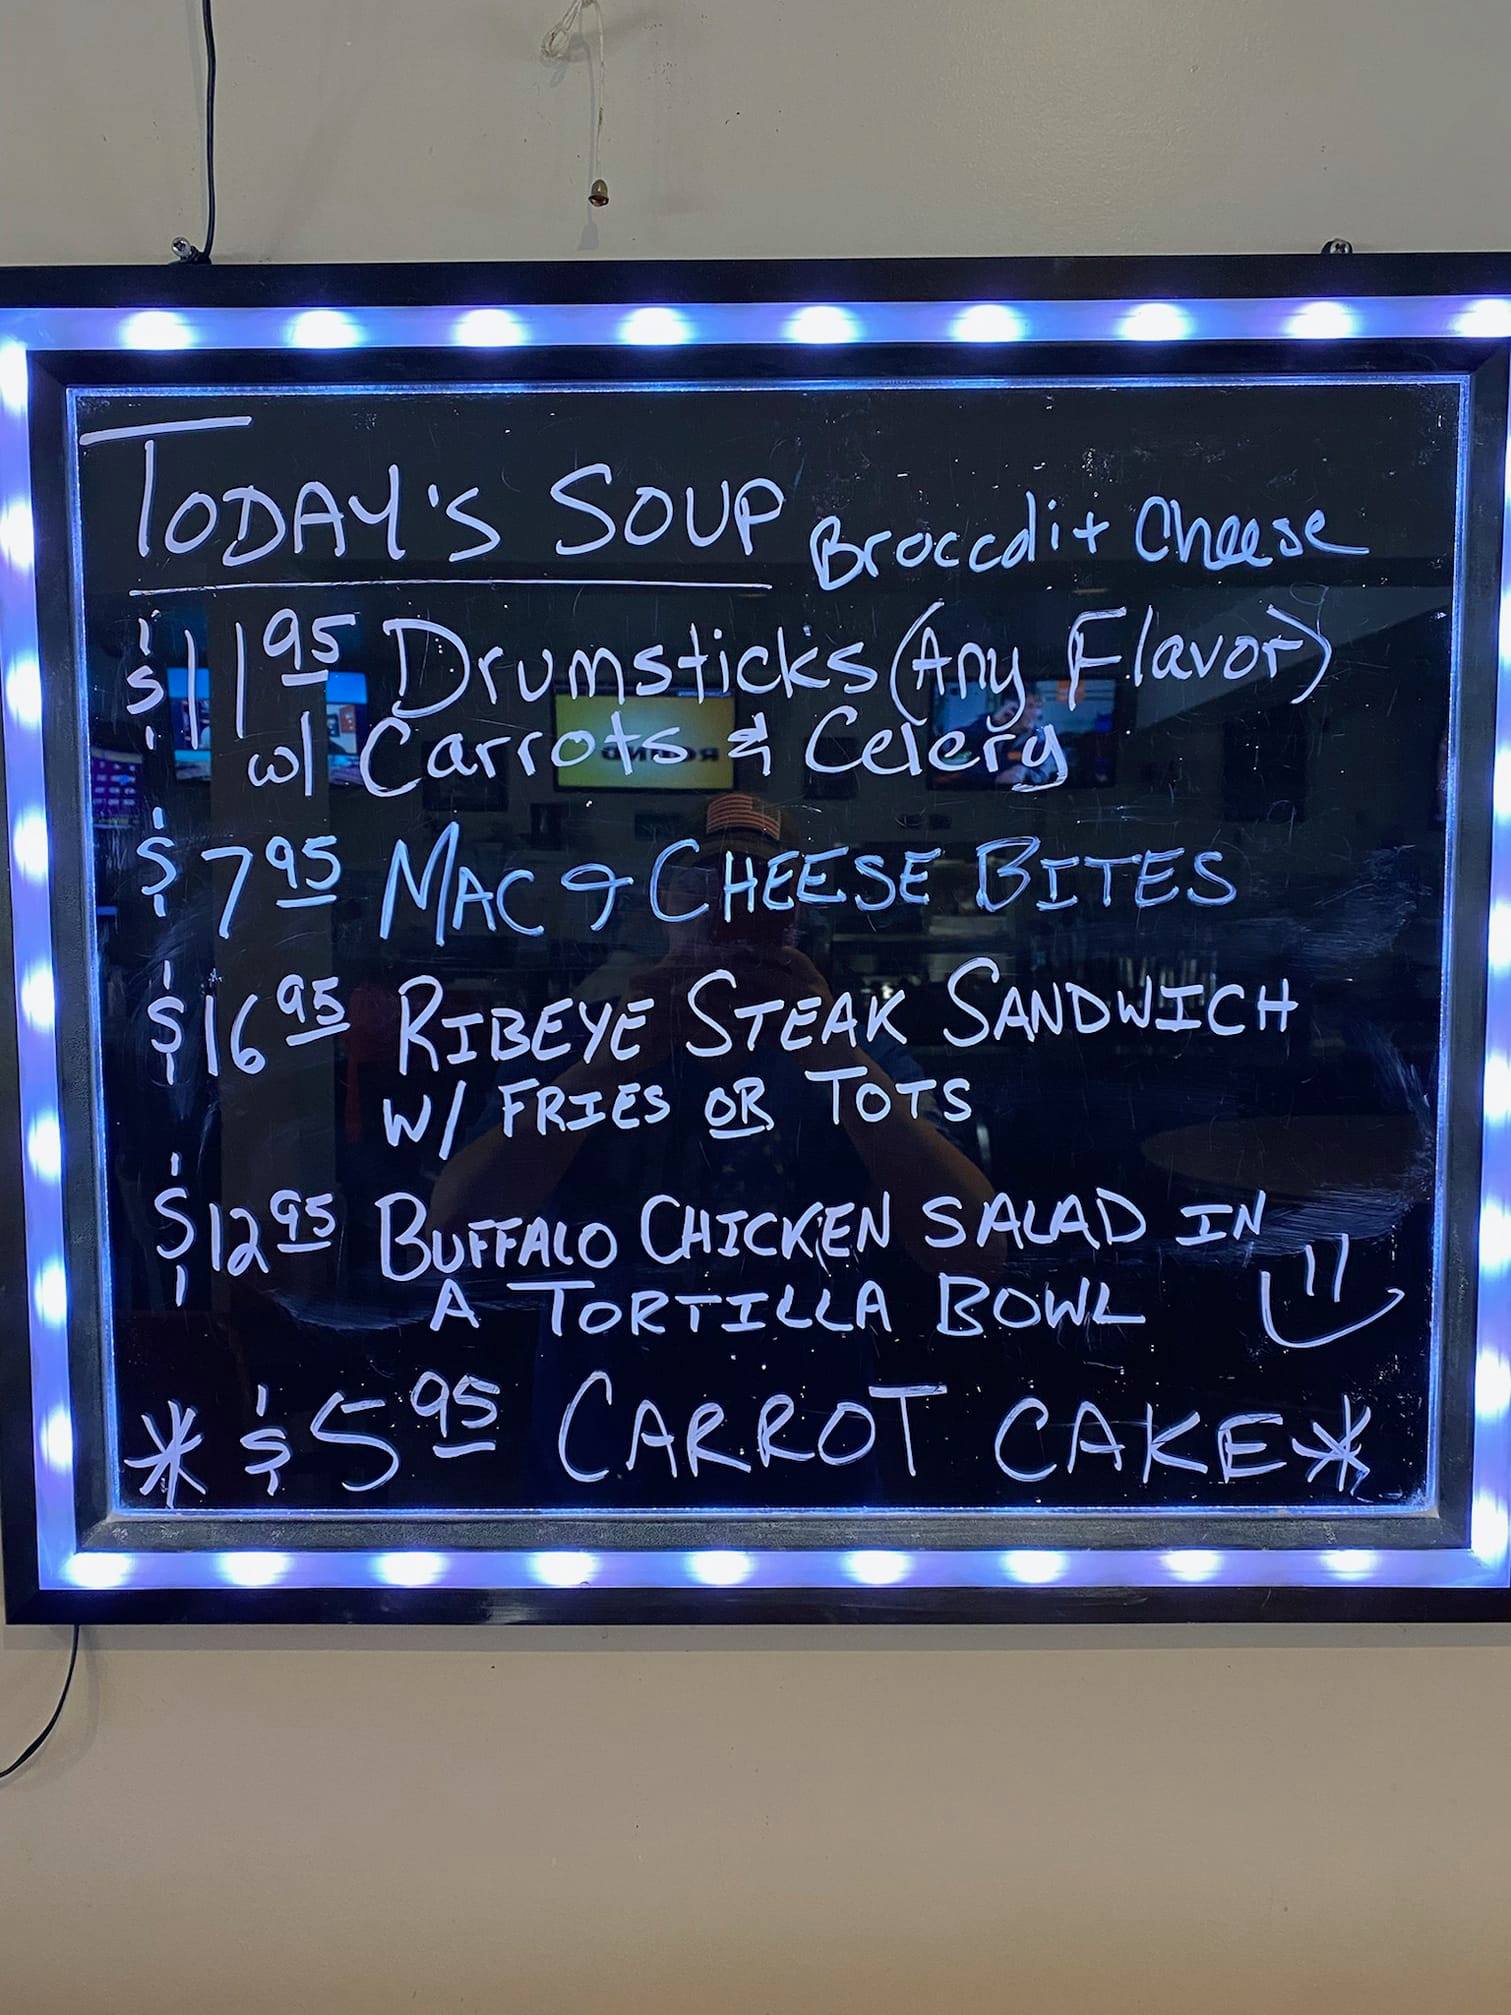 TODAY'S SOUP Broccoli + Cheese
$11.95 Drumsticks (Any Flavor)
w/ Carrots & Celery
$7.95 MAC & CHEESE BITES
$16.95 RIBEYE STEAK SANDWICH
W/ FRIES OR TOTS
$12.95 BUFFALO CHICKEN SALAD IN
A TORTILLA BOWL
* $5.95 CARROT CAKE *